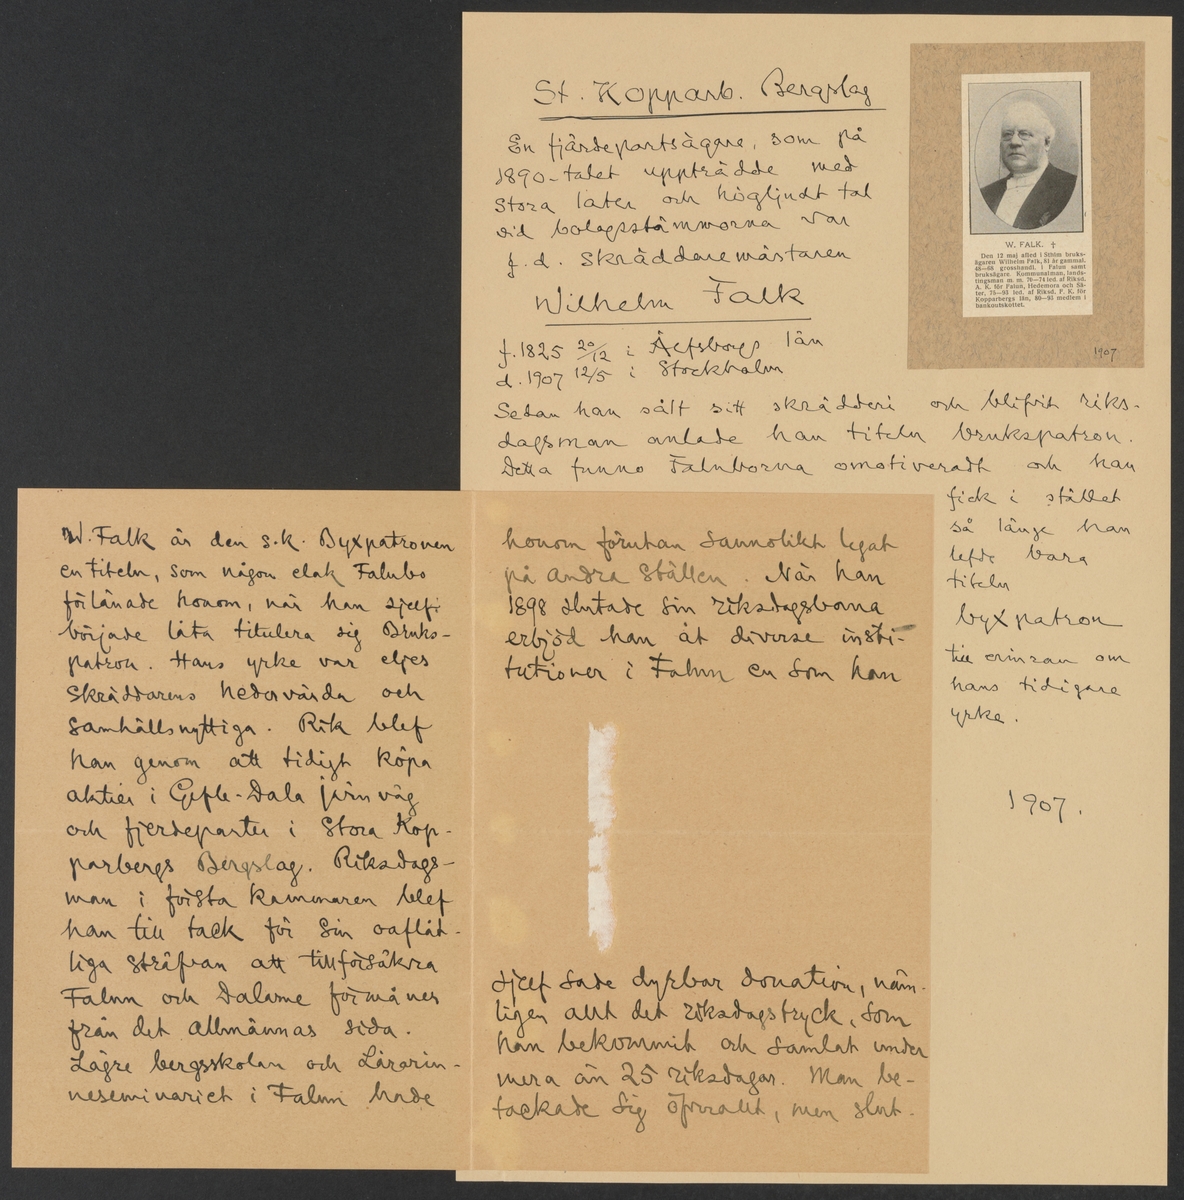 St. Kopparb. Bergslag
En fjärdepartsägare, som på
1890-talet uppträdde med
stora later och högljudt tal
vid bolagsstämmorna var
f.d. skräddaremästaren
Wilhelm Falk
f. 1825 20/12 i Älfsborgs län
d. 1907 12/5 i Stockholm
Sedan han sålt sitt skrädderi och blifvit riks-
dagsman anlade han titeln brukspatron.
Detta funno Faluborna omotiveradt och han
fick i stället
så länge han
lefde bara
titeln
byxpatron
till erinran om
hans tidigare
yrke.
1907.
W. FALK. †
Den 12 maj afled i Sthlm bruks-
ägaren Wilhelm Falk, 81 år gammal.
48—88 grosshandl. i Falun samt
bruksägare. Kommunalman, lands-
tingsman m. m. 70—74 led. af Riksd.
A. K. för Falun, Hedemora och Sä-
ter, 75—93 led. af Riksd. F. K. för
Kopparbergs län, 80—93 medlem i
bankoutskottet.
1907
W. Falk är den s.k. Byxpatronen
en titeln, som någon elak Falubo
förlänade honom, när han sjelf
började låta titulera sig Bruks-
patron. Hans yrke var eljes
skräddarens hedervärda och
samhällsnyttiga. Rik blef
han genom att tidigt köpa
aktier i Gefle-Dala järnväg
och fjerdeparter i Stora Kop-
parbergs Bergslag. Riksdags-
man i första kammaren blef
han till tack för sin oaflåt-
liga sträfvan att tillförsäkra
Falun och Dalarne förmåner
från det allmännas sida.
Lägre bergsskolan och Lärarin-
neseminariet i Falun hade
honom förutan sannolikt legat
på andra ställen. När han
1898 slutade sin riksdagsbana
erbjöd han åt diverse insti-
tutioner i Falun en som han
sjelf sade dyrbar donation, näm-
ligen allt det riksdagstryck, som
han bekommit och samlat under
mera än 25 riksdagar. Man be-
tackade sig öfverallt, men slut-